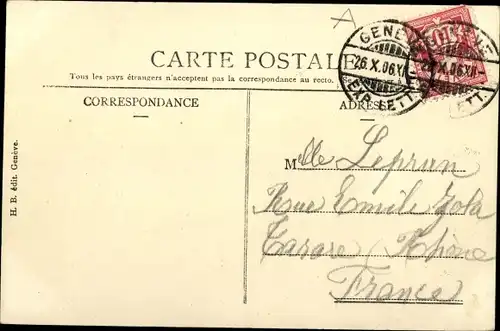 CARTE POSTALE
Tous les pays étrangers n'acceptent pas la correspondance au recto. Se
CORRESPONDANCE
ADRESSE
GENÈVE
26.X.06.XII
EXP. LETT.
Mlle Leprun
Rue Emile Zola
Tarare (Rhône
France
H. B. édit. Genève.